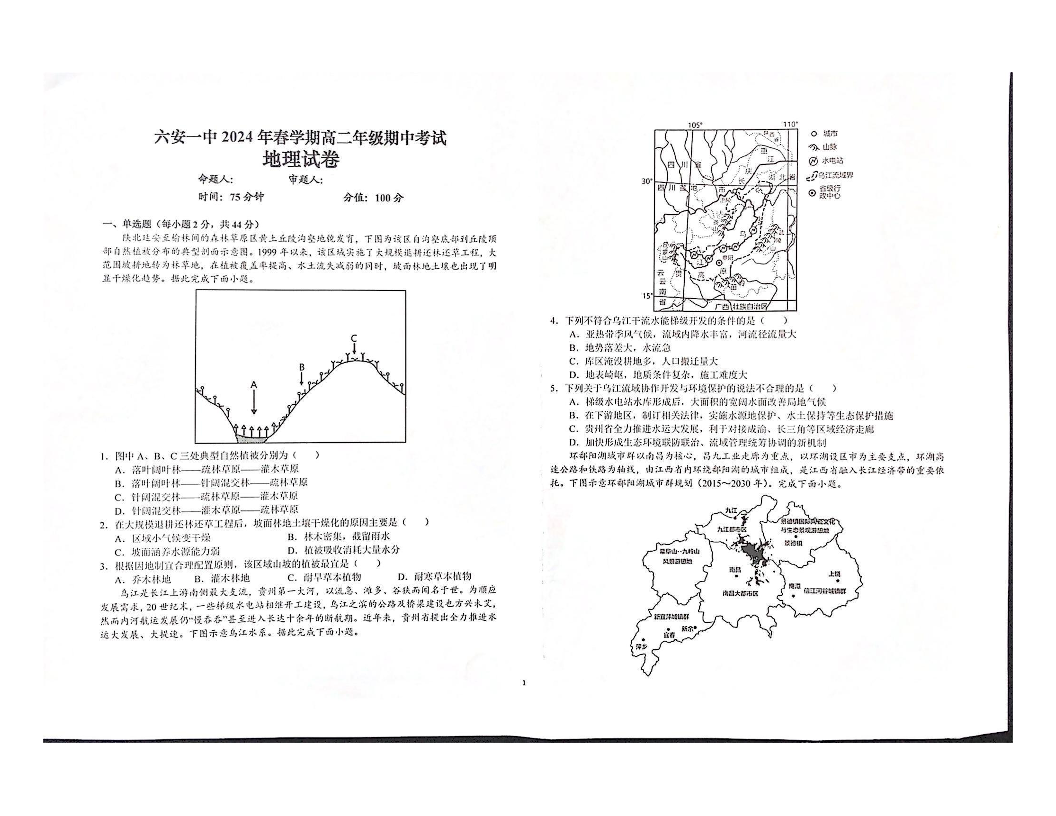 六安一中2024年春学期高二年级期中考试
地理试卷
命题人： 审题人：
时间：75分钟 分值：100分
一、单选题（每小题2分，共44分）
陕北延安至榆林间的森林草原区黄土丘陵沟壑地貌发育，下图为该区自沟壑底部到丘陵顶
部自然植被分布的典型剖面示意图。1999年以来，该区域实施了大规模退耕还林还草工程，大
范围坡耕地转为林草地，在植被覆盖率提高、水土流失减弱的同时，坡面林地土壤也出现了明
显干燥化趋势。据此完成下面小题。
A
B
C
1．图中A、B、C三处典型自然植被分别为（ ）
A．落叶阔叶林——疏林草原——灌木草原
B．落叶阔叶林——针阔混交林——疏林草原
C．针阔混交林——疏林草原——灌木草原
D．针阔混交林——灌木草原——疏林草原
2．在大规模退耕还林还草工程后，坡面林地土壤干燥化的原因主要是（ ）
A．区域小气候变干燥 B．林木密集，截留雨水
C．坡面涵养水源能力弱 D．植被吸收消耗大量水分
3．根据因地制宜合理配置原则，该区域山坡的植被最宜是（ ）
A．乔木林地 B．灌木林地 C．耐旱草本植物 D．耐寒草本植物
乌江是长江上游南侧最大支流，贵州第一大河，以流急、滩多、谷狭而闻名于世。为顺应
发展需求，20世纪末，一些梯级水电站相继开工建设，乌江之滨的公路及桥梁建设也方兴未艾，
然而内河航运发展仍“慢吞吞”甚至进入长达十余年的断航期。近年来，贵州省提出全力推进水
运大发展、大提速。下图示意乌江水系。据此完成下面小题。
105° 110°
30°
15°
四川省
四川盆地
重庆市
湖北省
贵
云南省
广西壮族自治区
城市
山脉
水电站
乌江流域界
省级行政中心
4．下列不符合乌江干流水能梯级开发的条件的是（ ）
A．亚热带季风气候，流域内降水丰富，河流径流量大
B．地势落差大，水流急
C．库区淹没耕地多，人口搬迁量大
D．地表崎岖，地质条件复杂，施工难度大
5．下列关于乌江流域协作开发与环境保护的说法不合理的是（ ）
A．梯级水电站水库形成后，大面积的宽阔水面改善局地气候
B．在下游地区，制订相关法律，实施水源地保护、水土保持等生态保护措施
C．贵州省全力推进水运大发展，利于对接成渝、长三角等区域经济走廊
D．加快形成生态环境联防联治、流域管理统筹协调的新机制
环鄱阳湖城市群以南昌为核心，昌九工业走廊为重点，以环湖设区市为主要支点，环湖高
速公路和铁路为轴线，由江西省内环绕鄱阳湖的城市组成，是江西省融入长江经济带的重要依
托。下图示意环鄱阳湖城市群规划（2015～2030年）。完成下面小题。
九江
九江都市区
景德镇国际陶瓷文化
与生态景观游憩地
景德镇
风景游憩地
南昌
南昌大都市区
上饶
鹰潭
信江河谷城镇群
新宜萍城镇群
新余
宜春
萍乡
1